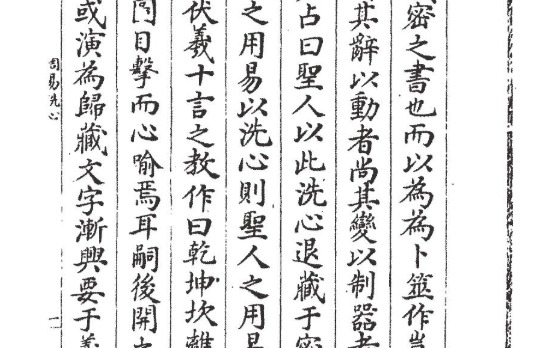 密之書也而以為為卜筮作豈
其辭以動者尚其變以制器者
占曰聖人以此洗心退藏于密
之用易以洗心則聖人之用易
伏羲十言之教作曰乾坤坎離
目擊而心喻焉耳嗣後開
或演為歸藏文字漸興要于
周易洗心